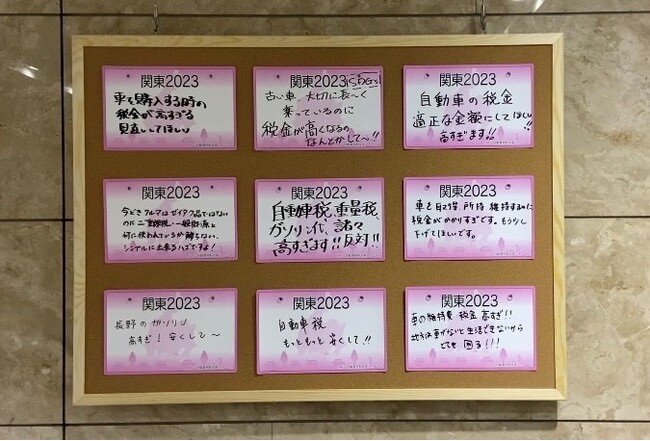 関東2023
車を購入する時の
税金が高すぎる
見直してほしい
関東2023
SDGs!
古い車、大切に長〜く
乗っているのに
税金が高くなるの
なんとかして〜!!
関東2023
自動車の税金
適正な金額にしてほしい!!
高すぎます!!
関東2023
今どきクルマはゼイタク品ではない
のに二重課税・一般財源と
何に使われているか解らない。
シンプルに出来るハズですよ!
関東2023
自動車税、重量税、
ガソリン代、諸々
高すぎます!!反対!!
関東2023
車を取得、所持、維持するのに
税金がかかりすぎです。もう少し
下げてほしいです。
関東2023
長野のガソリン
高すぎ!安くして〜
関東2023
自動車税
もっともっと安くして!!
関東2023
車の維持費 税金 高すぎ!!
地方は車がないと生活できないから
とても困る!!!